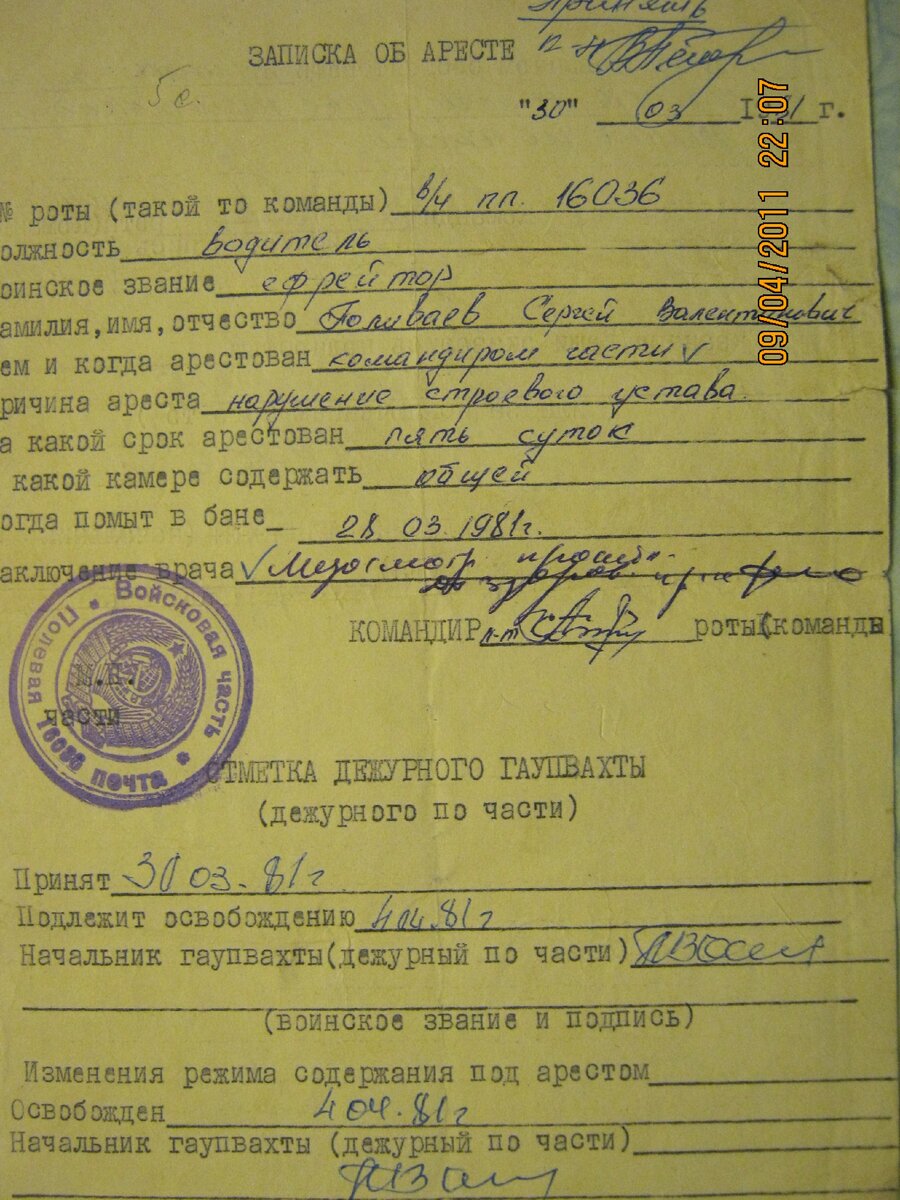 Принять
ЗАПИСКА ОБ АРЕСТЕ
5с.
"30" 03 1981 г.
09/04/2011 22:07
№ роты (такой то команды) в/ч пп. 16036
олжность водитель
оинское звание ефрейтор
амилия,имя,отчество Поливаев Сергей Валентинович
ем и когда арестован командиром части
ричина ареста нарушение строевого устава.
а какой срок арестован пять суток
какой камере содержать общей
огда помыт в бане 28 03 1981г.
аключение врача Медосмотр
КОМАНДИР роты(команды
Войсковая часть Полевая почта 16036
М.П.
части
ОТМЕТКА ДЕЖУРНОГО ГАУПВАХТЫ
(дежурного по части)
Принят 30 03.81г
Подлежит освобождению 4 04.81г
Начальник гаупвахты(дежурный по части)
(воинское звание и подпись)
Изменения режима содержания под арестом
Освобожден 4 04.81г
Начальник гаупвахты (дежурный по части)